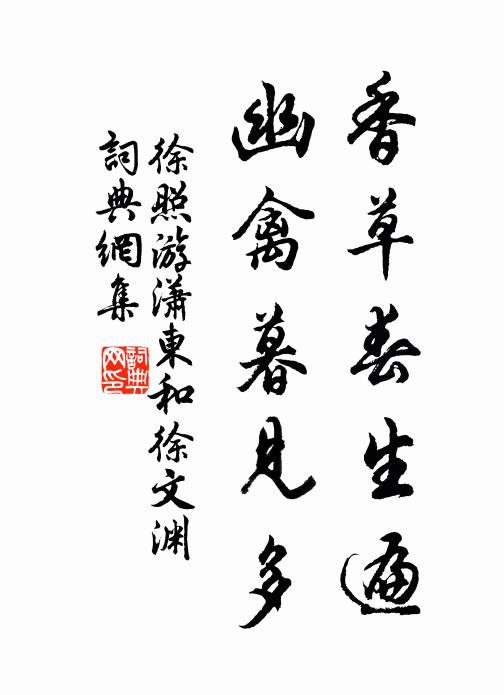 香草春生遍
幽禽暮見多
徐照游瀟東和徐文渊
詞典網集
詞典網印